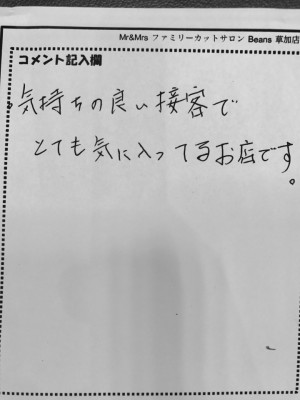 Mr&Mrs ファミリーカットサロン Beans 草加店
コメント記入欄
気持ちの良い接客で
とても気に入ってるお店です。